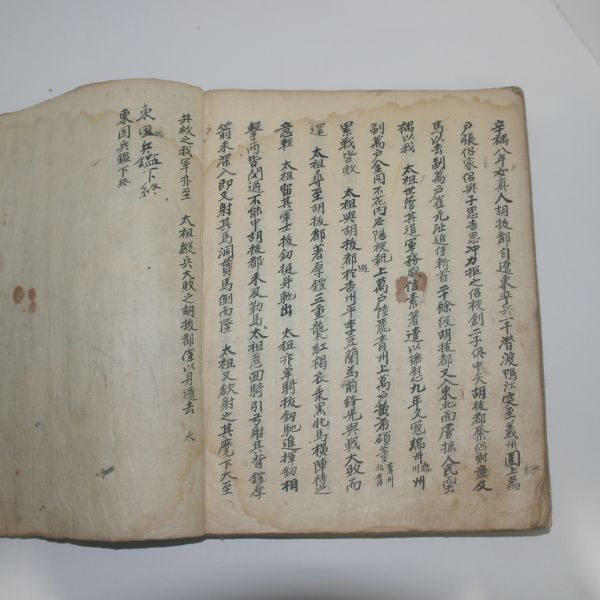 辛禑八年女真人胡拔都自遼東率兵一千潛渡鴨江突至義州圍上萬
戶張侶家侶與子思吉思冲力拒之侶被創二子俱中矢胡拔都奪侶財產及
馬以去副萬戶崔元沚追徃斬首二十餘級胡拔都又入東北面虜掠人民
禑以我 太祖世管其道軍務威信素著遣以慰九年又寇端州
副萬戶金同不花內應陽被執上萬戶陸麗青州上萬戶黃希碩等
累戰皆敗 太祖與胡拔都於吉州平李豆蘭為前鋒先與戰大敗而
還 太祖尋至胡拔都著厚鎧三重襲紅褐衣乘黑牝馬橫陣待之
意輕 太祖留其軍士拔劒挺身馳出 太祖亦單騎拔劒馳進揮劒相
擊兩皆閃過不能中胡拔都未及勒馬 太祖急回騎引弓射其背鎧厚
箭未深入即又射其馬洞貫馬倒而墜 太祖又欲射之其麾下大至
共救之我軍亦至 太祖縱兵大敗之胡拔都僅以身遁去 太
東國兵鑑下終
東国兵鑑下終